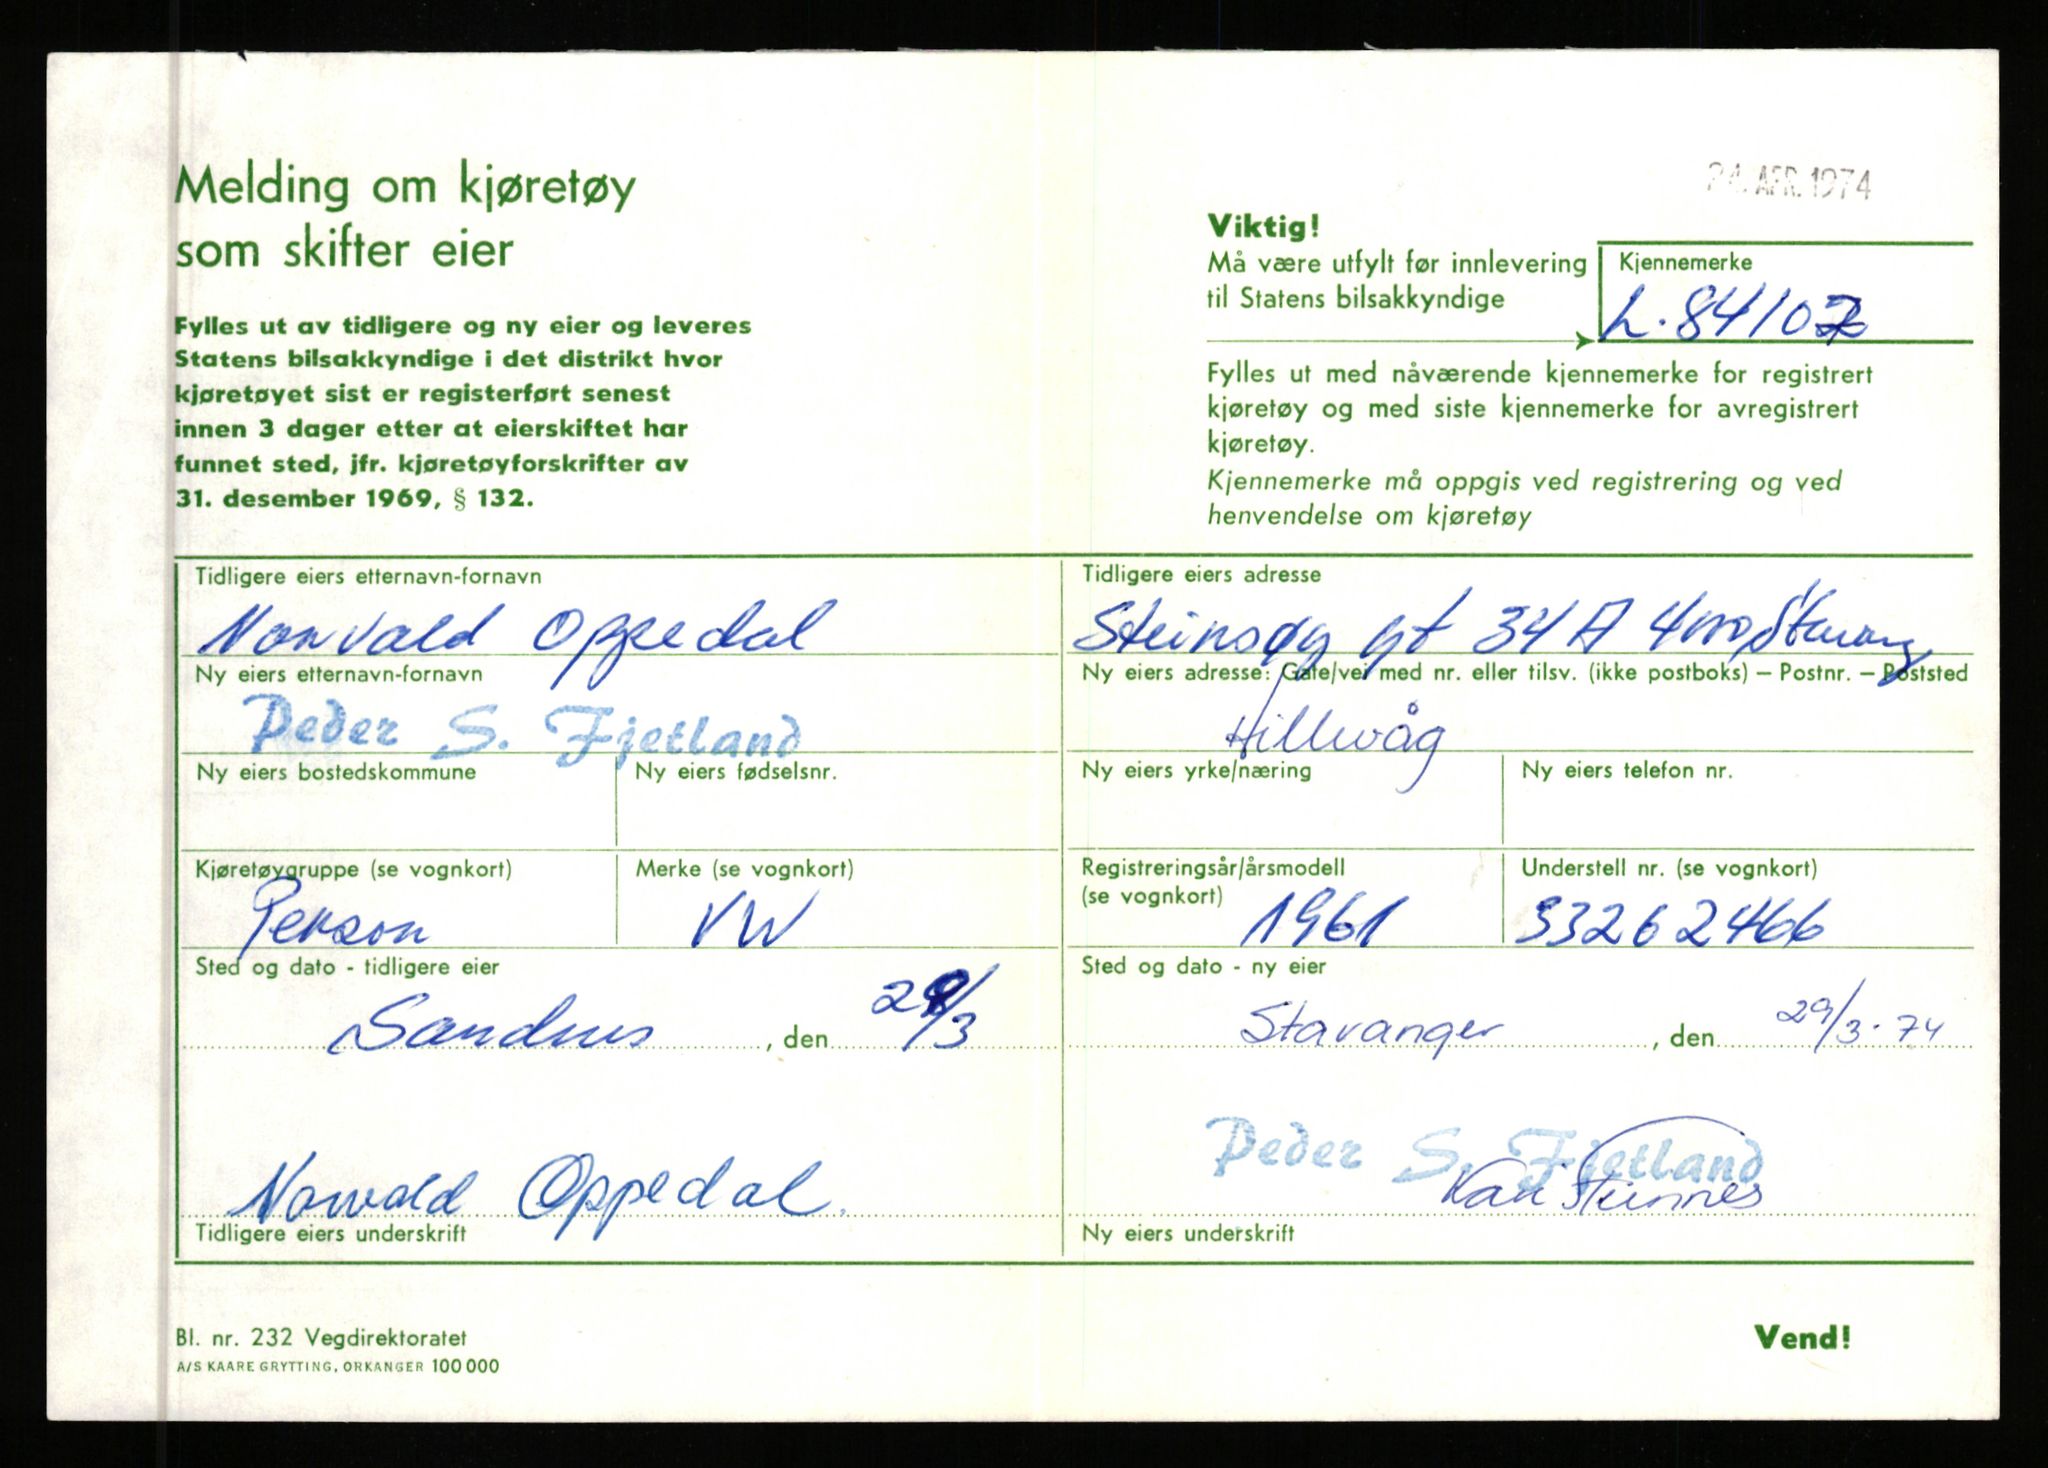 Melding om kjøretøy
som skifter eier
Fylles ut av tidligere og ny eier og leveres
Statens bilsakkyndige i det distrikt hvor
kjøretøyet sist er registerført senest
innen 3 dager etter at eierskiftet har
funnet sted, jfr. kjøretøyforskrifter av
31. desember 1969, § 132.
24. APR. 1974
Viktig!
Må være utfylt før innlevering
til Statens bilsakkyndige
Kjennemerke
L.84107
Fylles ut med nåværende kjennemerke for registrert
kjøretøy og med siste kjennemerke for avregistrert
kjøretøy.
Kjennemerke må oppgis ved registrering og ved
henvendelse om kjøretøy
Tidligere eiers etternavn-fornavn
Norvald Oppedal
Tidligere eiers adresse
Steinsøy gt 34 A 4000 Stavang
Ny eiers etternavn-fornavn
Peder S. Fjetland
Ny eiers adresse: Gate/vei med nr. eller tilsv. (ikke postboks) – Postnr. – Poststed
Hillevåg
Ny eiers bostedskommune
Ny eiers fødselsnr.
Ny eiers yrke/næring
Ny eiers telefon nr.
Kjøretøygruppe (se vognkort)
Person
Merke (se vognkort)
VW
Registreringsår/årsmodell
(se vognkort)
1961
Understell nr. (se vognkort)
33262466
Sted og dato - tidligere eier
Sandnes, den 28/3
Sted og dato - ny eier
Stavanger, den 29/3.74
Norvald Oppedal.
Tidligere eiers underskrift
Peder S. Fjetland
Kari Steinnes
Ny eiers underskrift
Bl. nr. 232 Vegdirektoratet
A/S KAARE GRYTTING, ORKANGER 100 000
Vend!